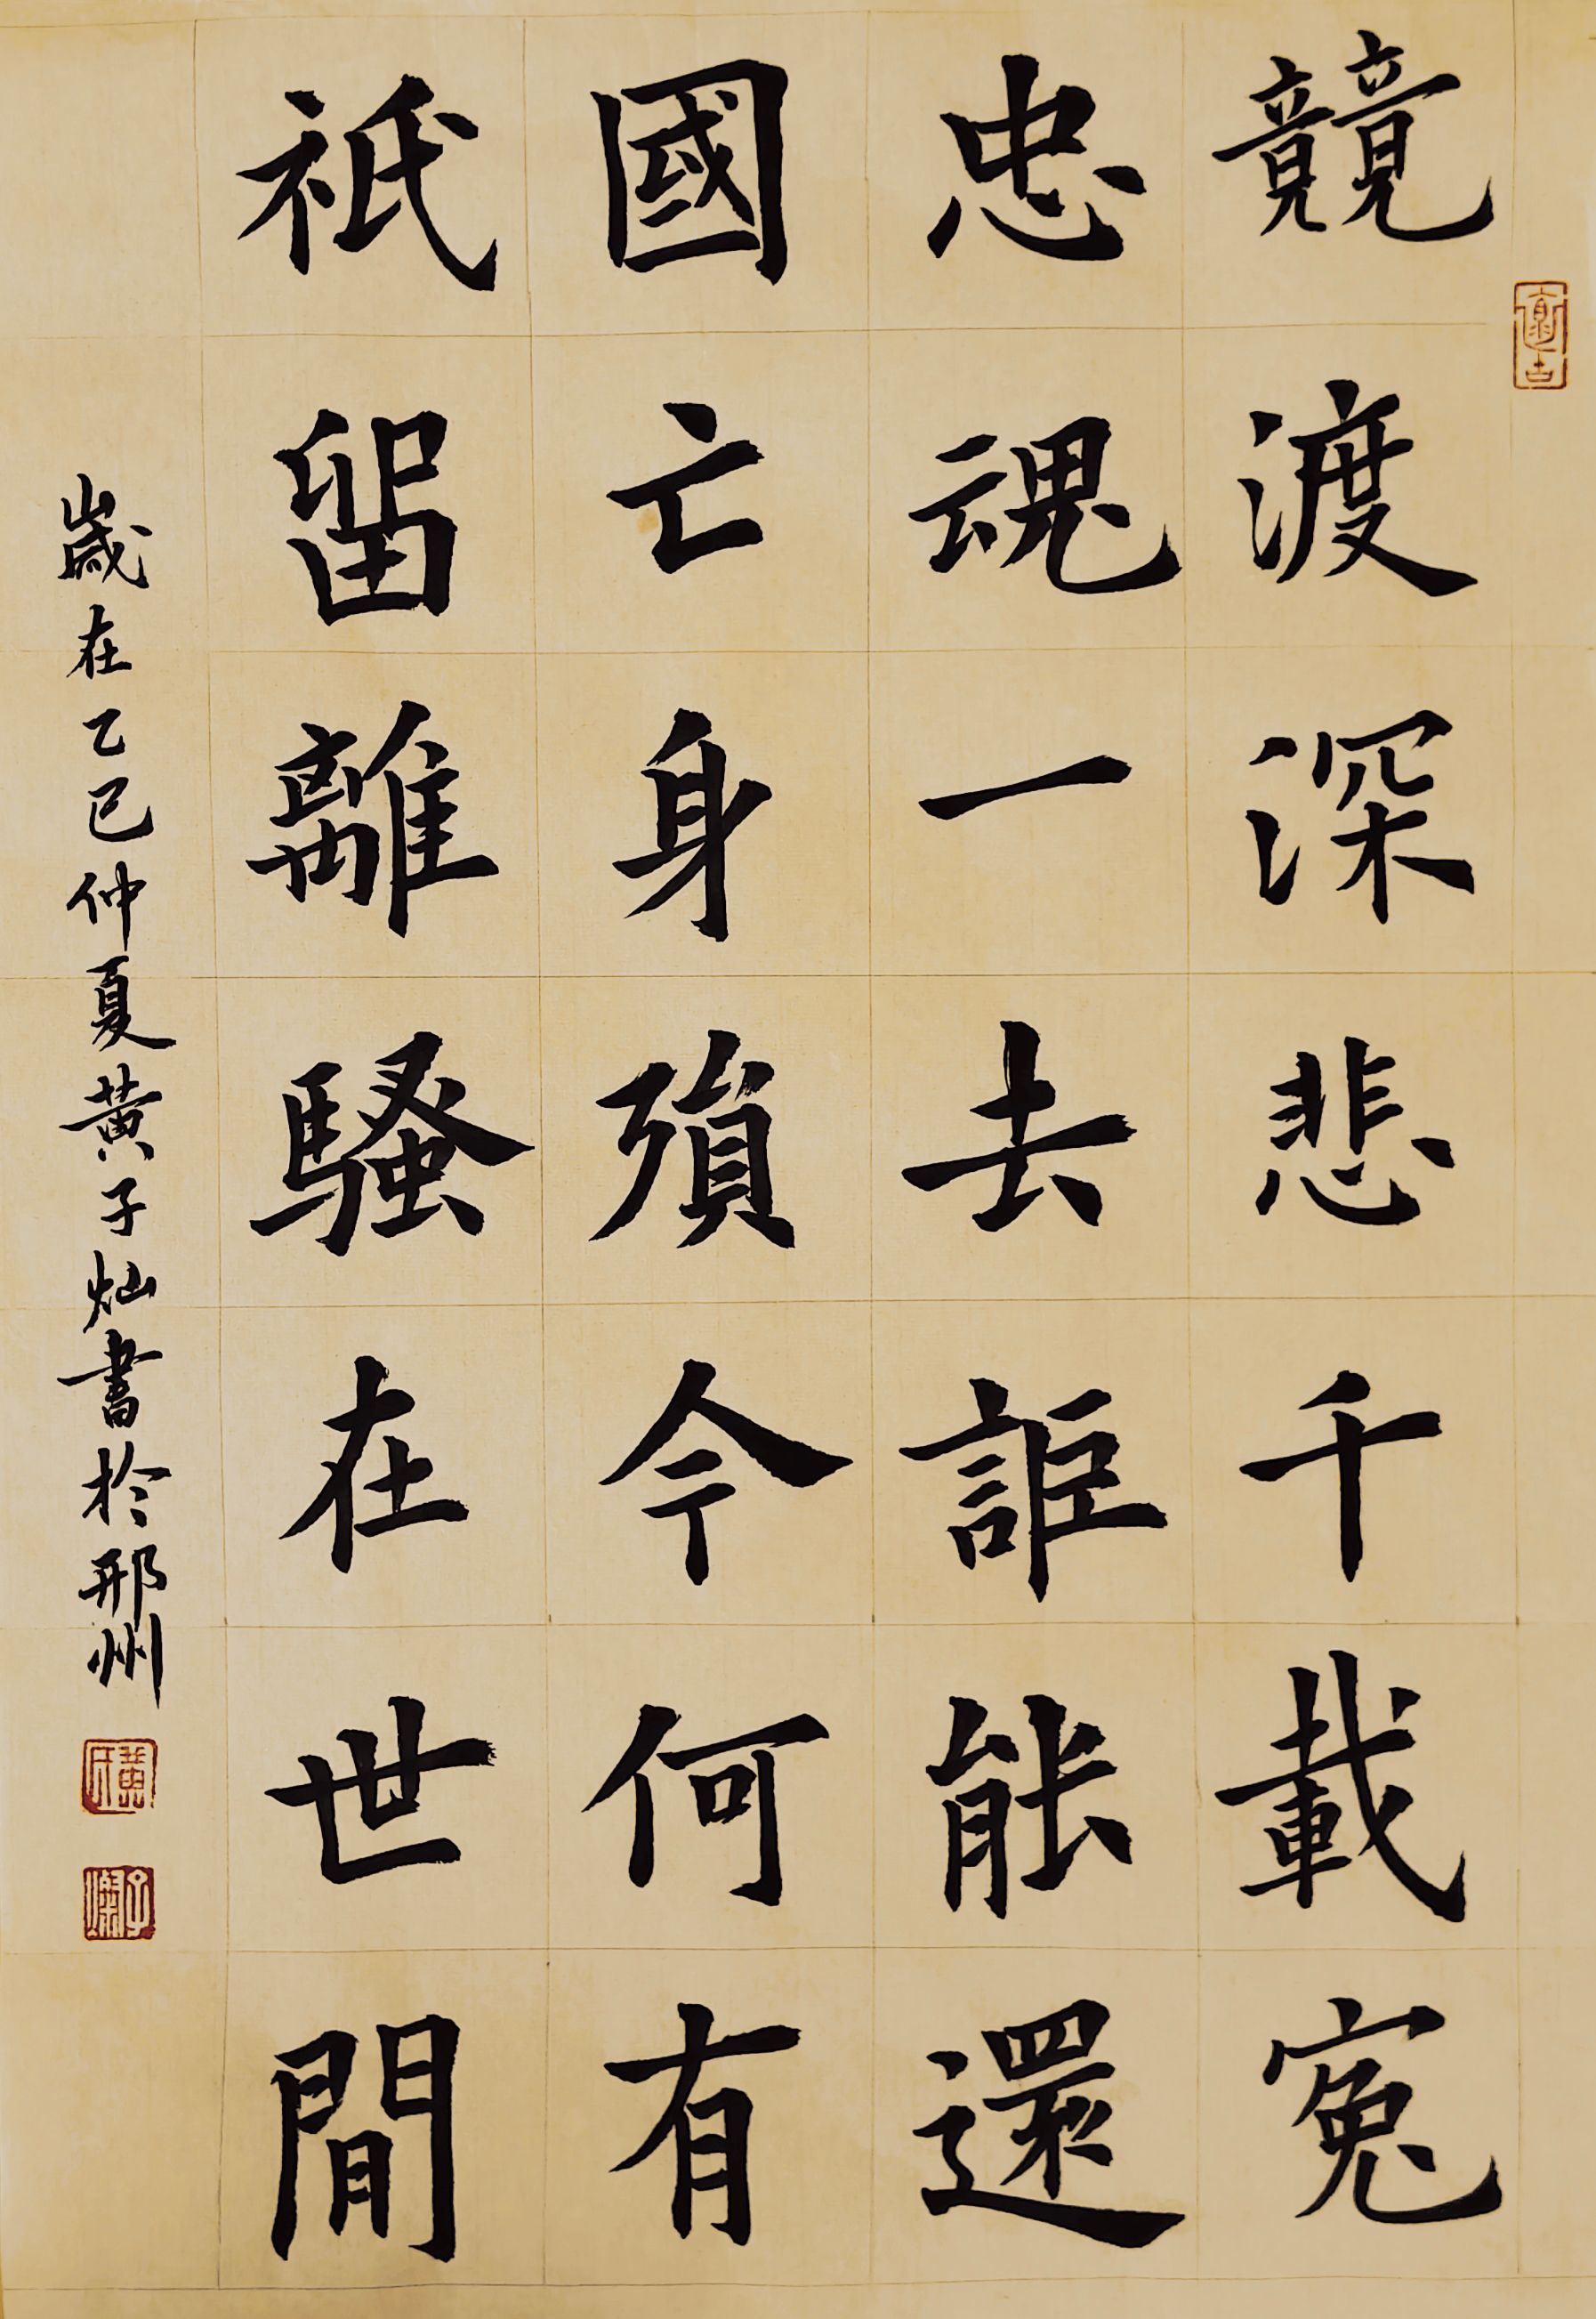 競渡深悲千載冤
忠魂一去詎能還
國亡身殞今何有
祇留離騷在世間
歲在乙巳仲夏黄子灿書於邢州
黄氏
子燦